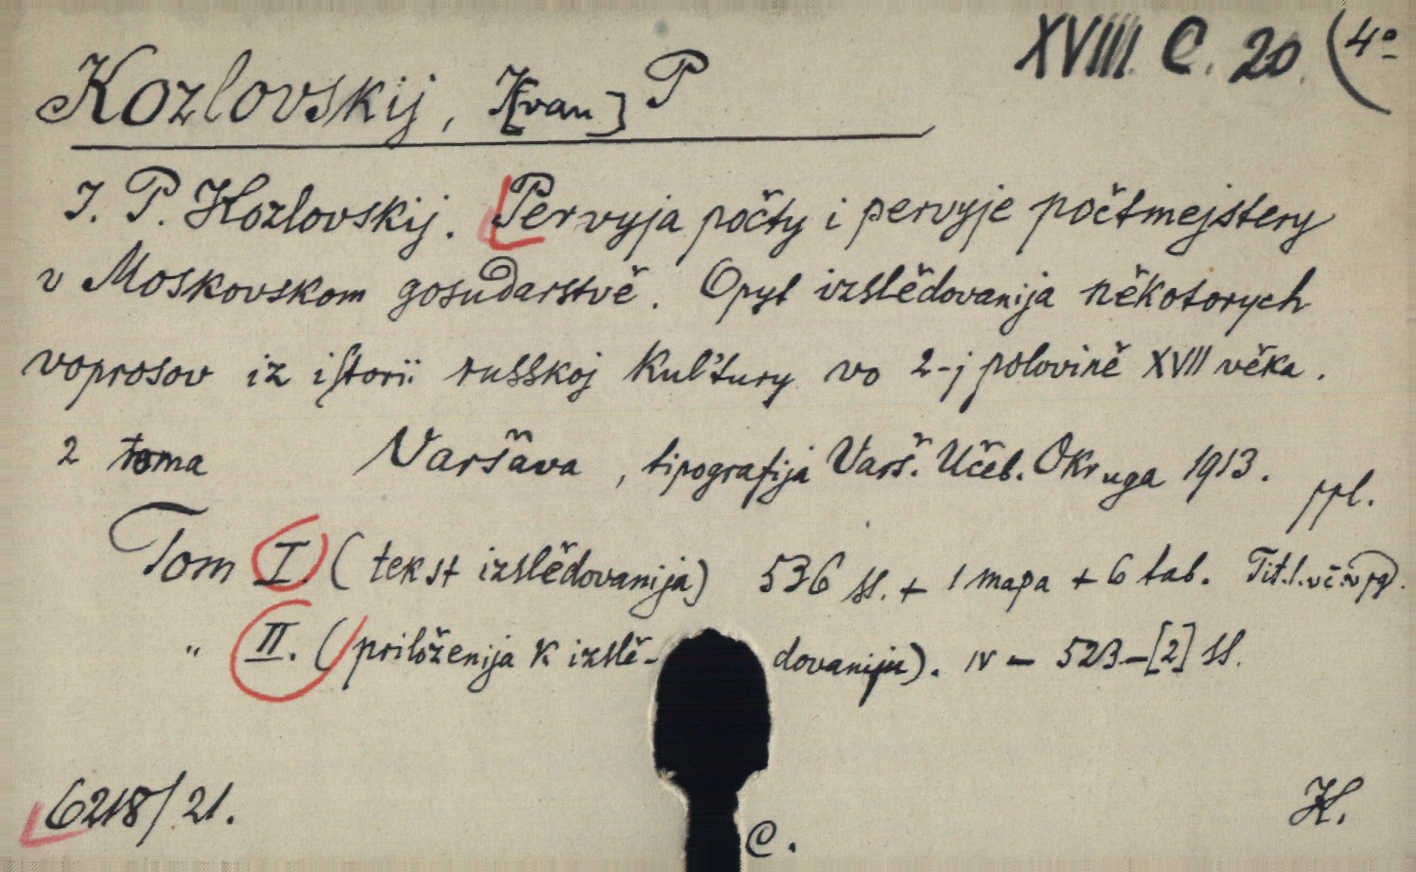 XVIII. C. 20. (4º
Kozlovskij, I[van] P
I. P. Kozlovskij. Pervyja počty i pervyje počtmejstery
v Moskovskom gosudarstvě. Opyt izslědovanija někotorych
voprosov iz istorii russkoj kul'tury vo 2-j polovině XVII věka.
2 toma Varšava, tipografija Varš. Učeb. Okruga 1913. ppl.
Tom I. (tekst izslědovanija) 536 ss. + 1 mapa + 6 tab. Tit. l. vč. v pg.
„ II. (priloženija k izslě-dovaniju). IV - 523-[2] ss.
6218/21.
C.
K.